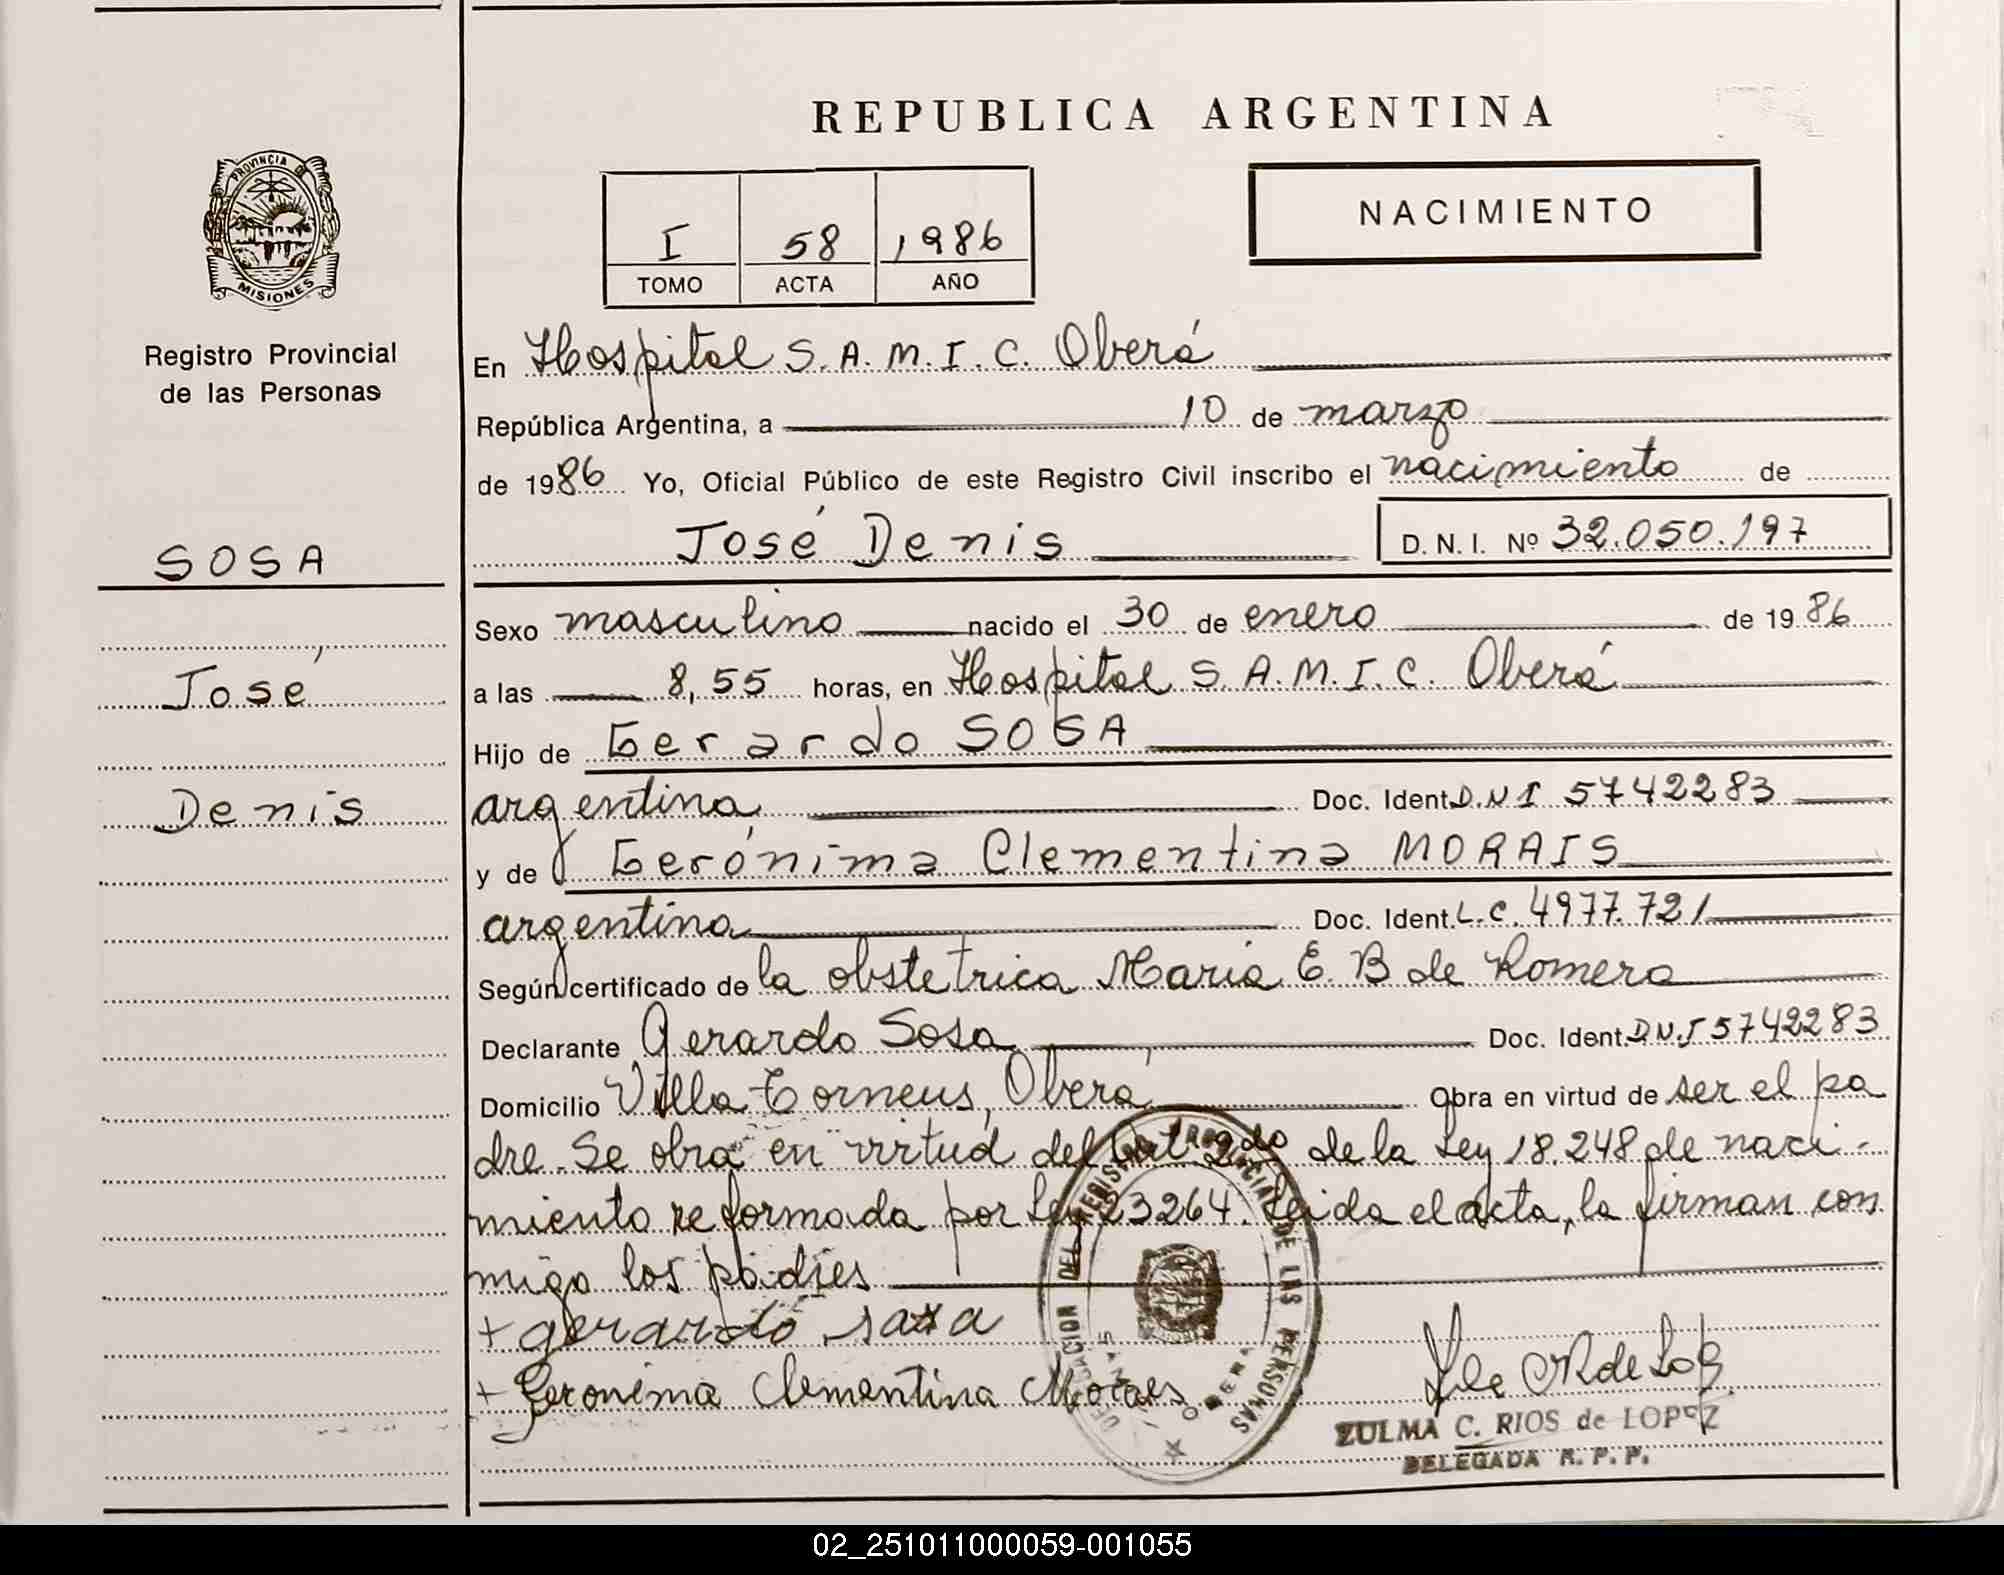 REPUBLICA ARGENTINA
PROVINCIA DE
MISIONES
Registro Provincial
de las Personas
I 58 1986
TOMO ACTA AÑO
NACIMIENTO
En Hospital S.A.M.I.C. Oberá
República Argentina, a 10 de marzo
de 1986 Yo, Oficial Público de este Registro Civil inscribo el nacimiento de
José Denis D.N.I. Nº 32.050.197
SOSA
José
Denis
Sexo masculino nacido el 30 de enero de 1986
a las 8,55 horas, en Hospital S.A.M.I.C. Oberá
Hijo de Gerardo SOSA
argentina Doc. Ident. D.N.I 5742283
y de Gerónima Clementina MORAIS
argentina Doc. Ident. L.C. 4977.721
Según certificado de la obstetrica Maria E. B de Romero
Declarante Gerardo Sosa Doc. Ident. D.N.I 5742283
Domicilio Villa Torneus, Oberá Obra en virtud de ser el pa
dre. Se obra en virtud del Art. 2do de la Ley 18.248 de naci-
miento reformada por Ley 23264. Leida el acta, la firman con
migo los padres
+ gerardo sosa
+ Geronima Clementina Moraes
DELEGACION DEL REGISTRO PROVINCIAL DE LAS PERSONAS
OBERA
ZULMA C. RIOS de LOPEZ
DELEGADA R. P. P.
02_251011000059-001055